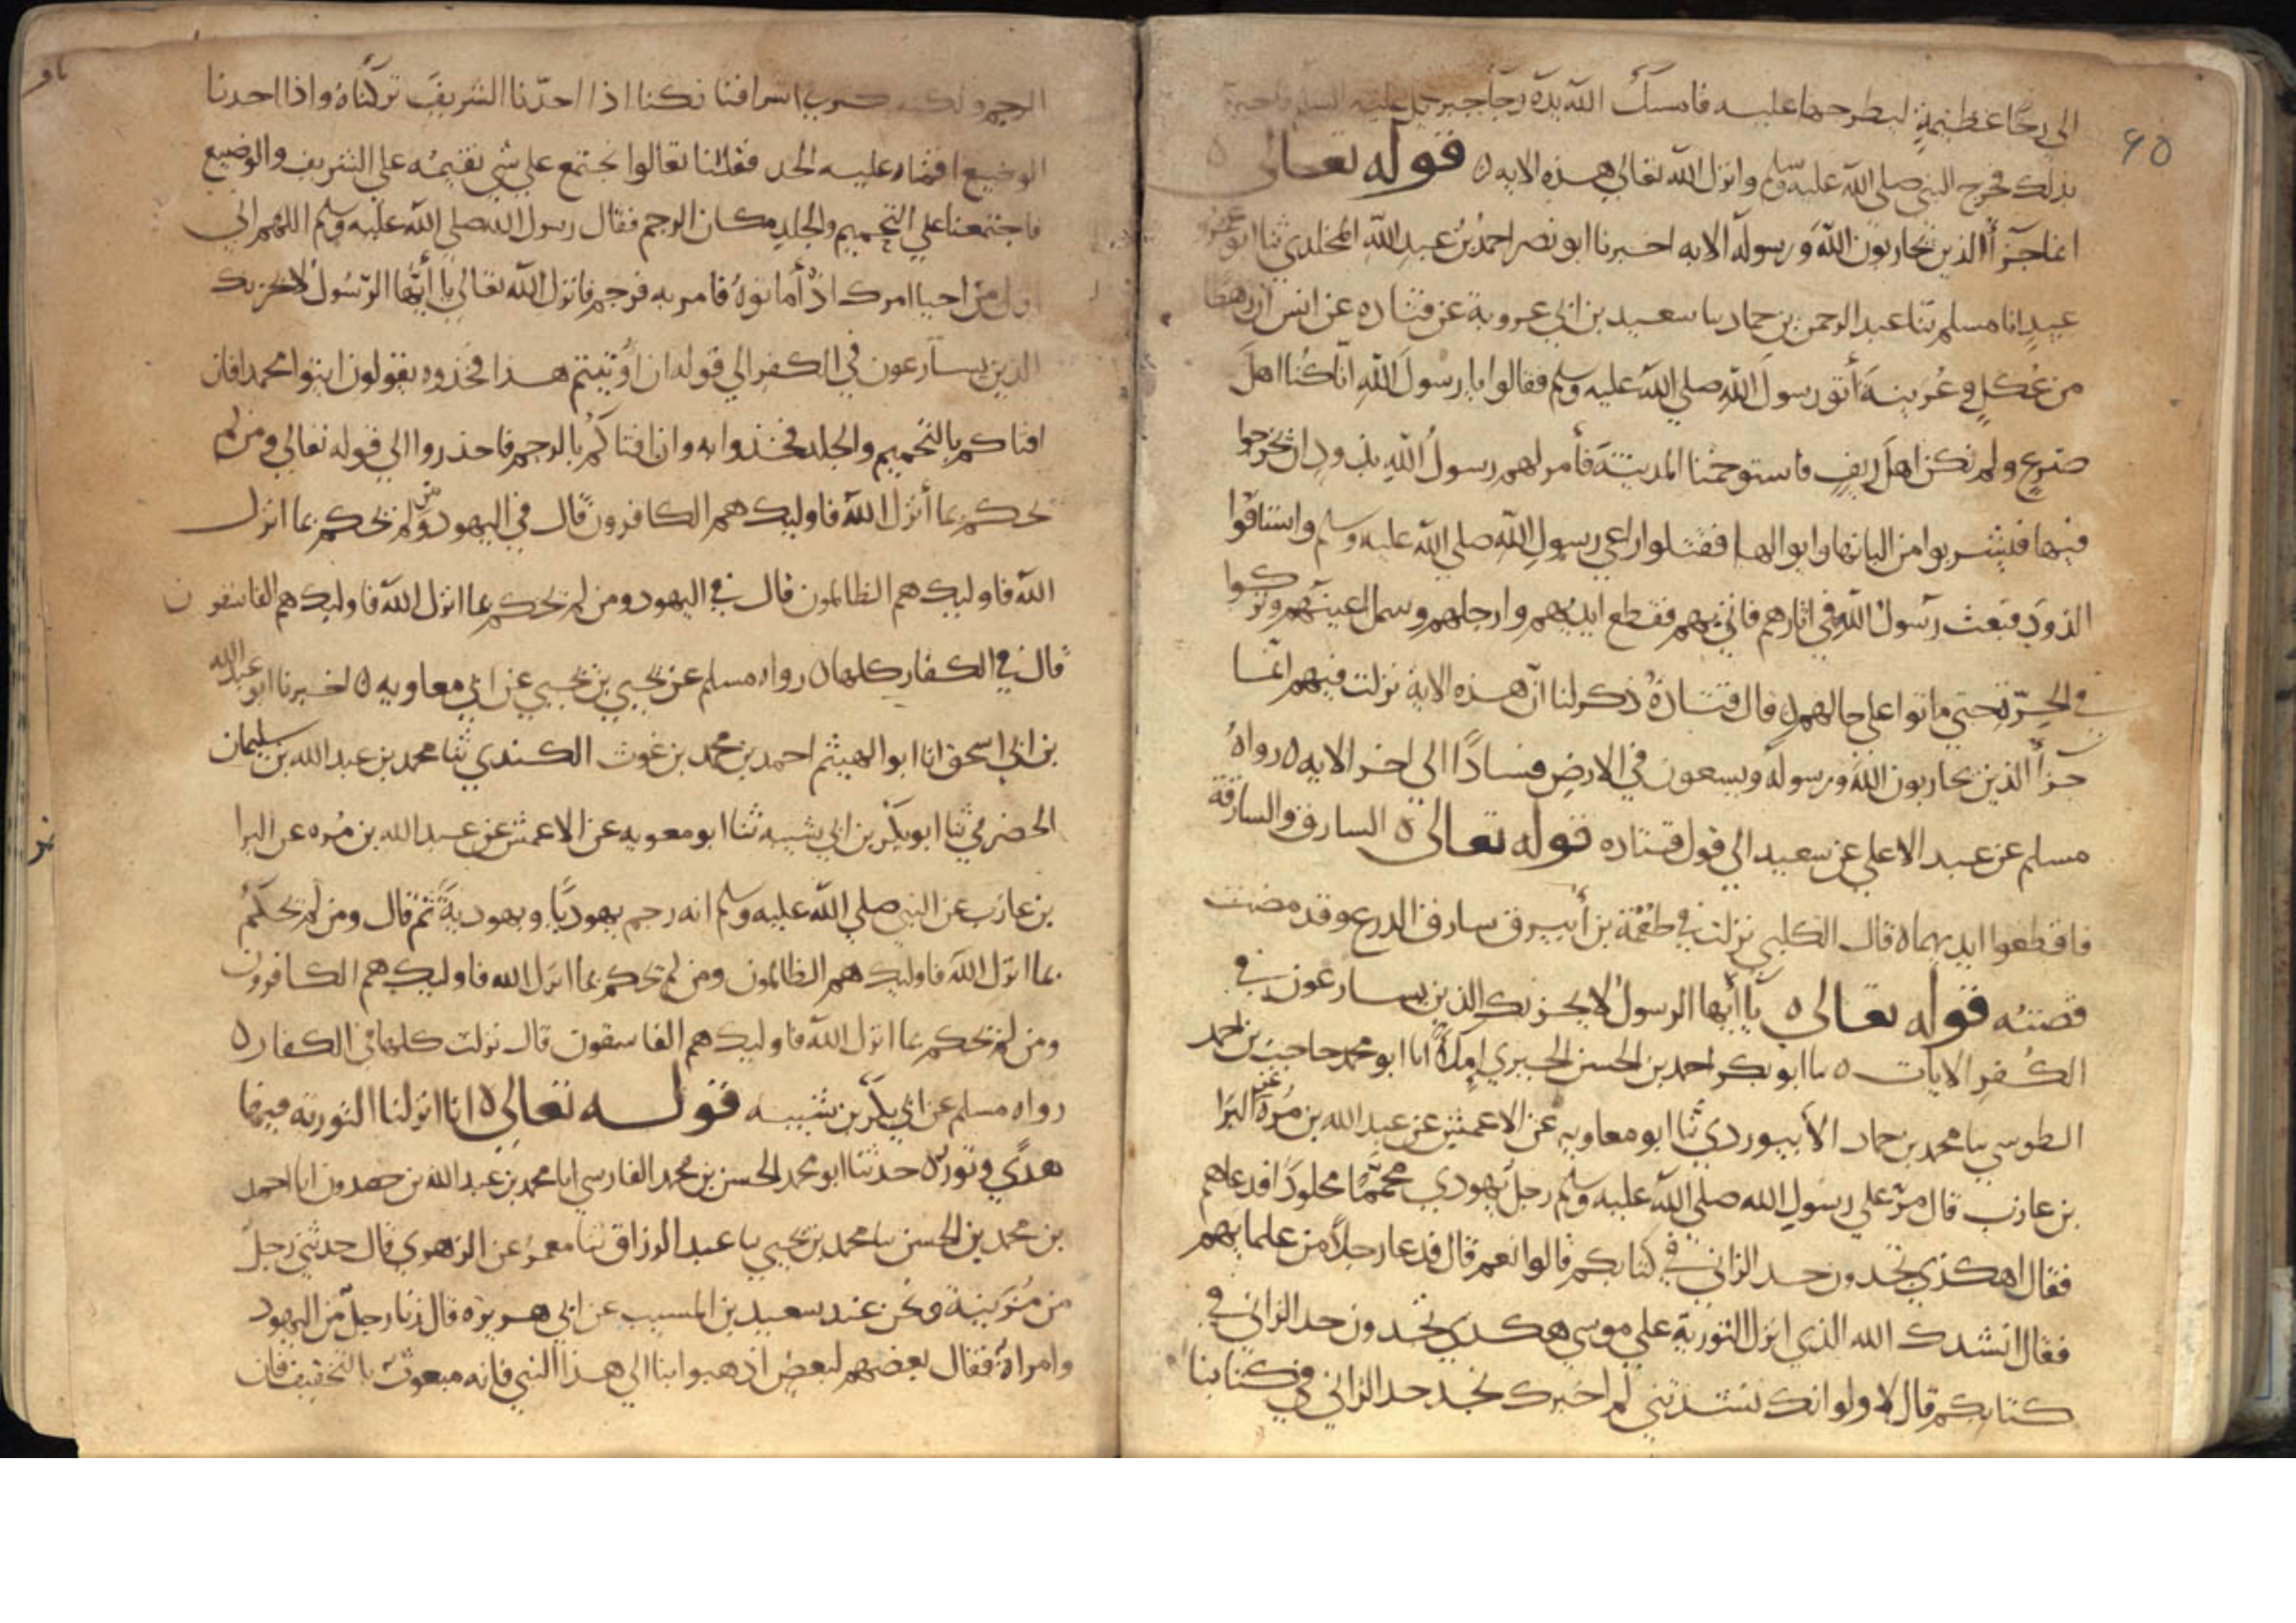 ٦٥
الي رحًا عظيمةٍ ليطرحها عليه فامسك الله يده وجا جبريل عليه السلم واخبره
بذلك فخرج النبي صلي الله عليه وسلم وانزل الله تعالي هذه الايه ه قوله تعالى ه
انما جزآأ الذين يحاربون الله ورسوله الايه اخبرنا ابو نصر احمد بن عبد الله المخلدي ثنا ابو عمرو
عبيد انا مسلم ثنا عبد الرحمن بن حماد نا سعيد بن ابي عروبة عن قتاده عن انس ان رهطا
من عُكلٍ وعُرينة أتو رسول الله صلي الله عليه وسلم فقالوا يا رسول الله انا كنا اهل
ضرع ولم نكن اهل ريف فاستوخمنا المدينة فأمر لهم رسول الله بذود ان يخرجوا
فيها فيشربوا من البانها وابوالها فقتلوا راعي رسول الله صلي الله عليه وسلم واستاقوا
الذود فبعث رسول الله في اثارهم فاتي بهم فقطع ايديهم وارجلهم وسمل اعينهم وتركوا
في الحرّة حتي ماتوا علي حالهم ه قال قتادة ذكر لنا ان هذه الاية نزلت فيهم انما
جزأ الذين يحاربون الله ورسوله ويسعون في الارض فسادًا الى اخر الايه ه رواه
مسلم عن عبد الاعلي عن سعيد الي قول قتاده قوله تعالى ه السارق والسارقة
فاقطعوا ايديهما ه قال الكلبي نزلت في طعمة بن أبيرق سارق الدرع وقد مضت
قصته قوله تعالى ه يا أيها الرسول لا يحزنك الذين يسارعون في
الكُفر الايات ه نا ابو بكر احمد بن الحسن الحيري املاءً انا ابو محمد حاجب بن احمد
الطوسي نا محمد بن حماد الأبيوردي ثنا ابو معاويه عن الاعمش عن عبد الله بن مُرة عن البرا
بن عازب قال مرّ علي رسول الله صلي الله عليه وسلم رجل يهودي محممًا مجلودًا فدعاهم
فقال اهكذي تجدون حد الزاني في كتابكم قالوا نعم قال فدعا رجلاً من علمايهم
فقال انشدك الله الذي انزل التورية علي موسي هكذي تجدون حد الزاني في
كتابكم قال لا ولو انك نشدتني لم اخبرك نجد حد الزاني في كتابنا
الرجم ولكنه كثر في اشرافنا فكنا اذا اخذنا الشريف تركناه واذا اخذنا
الوضيع اقمنا عليه الحد فقلنا تعالوا نجتمع علي شي نقيمه علي الشريف والوضيع
فاجتمعنا علي التحميم والجلد مكان الرجم فقال رسول الله صلي الله عليه وسلم اللهم اني
اول من احيا امرك اذ أماتوه فامر به فرجم فانزل الله تعالي يا أيها الرسول لا يحزنك
الذين يسارعون في الكفر الي قوله ان أوتيتم هذا فخذوه يقولون ايتوا محمدا فان
افتاكم بالتحميم والجلد فخذوا به وان افتاكم بالرجم فاحذروا الي قوله تعالي ومن لم
يحكم بما أنزل الله فاوليك هم الكافرون قال في اليهود ومن لم يحكم بما انزل
الله فاوليك هم الظالمون قال في اليهود ومن لم يحكم بما انزل الله فاوليك هم الفاسقون
قال في الكفار كلها ه رواه مسلم عن يحيي بن يحيي عن ابي معاويه ه اخبرنا ابو عبد الله
بن ابي اسحق انا ابو الهيثم احمد بن محمد بن غوث الكندي ثنا محمد بن عبد الله بن سليمان
الحضرمي ثنا ابو بكر بن ابي شيبه ثنا ابو معويه عن الاعمش عن عبد الله بن مُره عن البرا
بن عازب عن النبي صلي الله عليه وسلم انه رجم يهوديًا ويهوديةً ثم قال ومن لم يحكم
بما انزل الله فاوليك هم الظالمون ومن لم يحكم بما انزل الله فاوليك هم الكافرون
ومن لم يحكم بما انزل الله فاوليك هم الفاسقون قال نزلت كلها في الكفار ه
رواه مسلم عن ابي بكر بن شيبه قوله تعالى ه انا انزلنا التورته فيها
هدًي ونور ه حدثنا ابو محمد الحسن بن محمد الفارسي انا محمد بن عبد الله بن حمدون انا احمد
بن محمد بن الحسن نا محمد بن يحيي نا عبد الرزاق ثنا معمر عن الزهري قال حدثني رجل
من مُزَينة ونحن عند سعيد بن المسيب عن ابي هريره قال زنا رجل من اليهود
وامراة فقال بعضهم لبعض اذهبوا بنا الي هذا النبي فانه مبعوث بالتخفيف فان